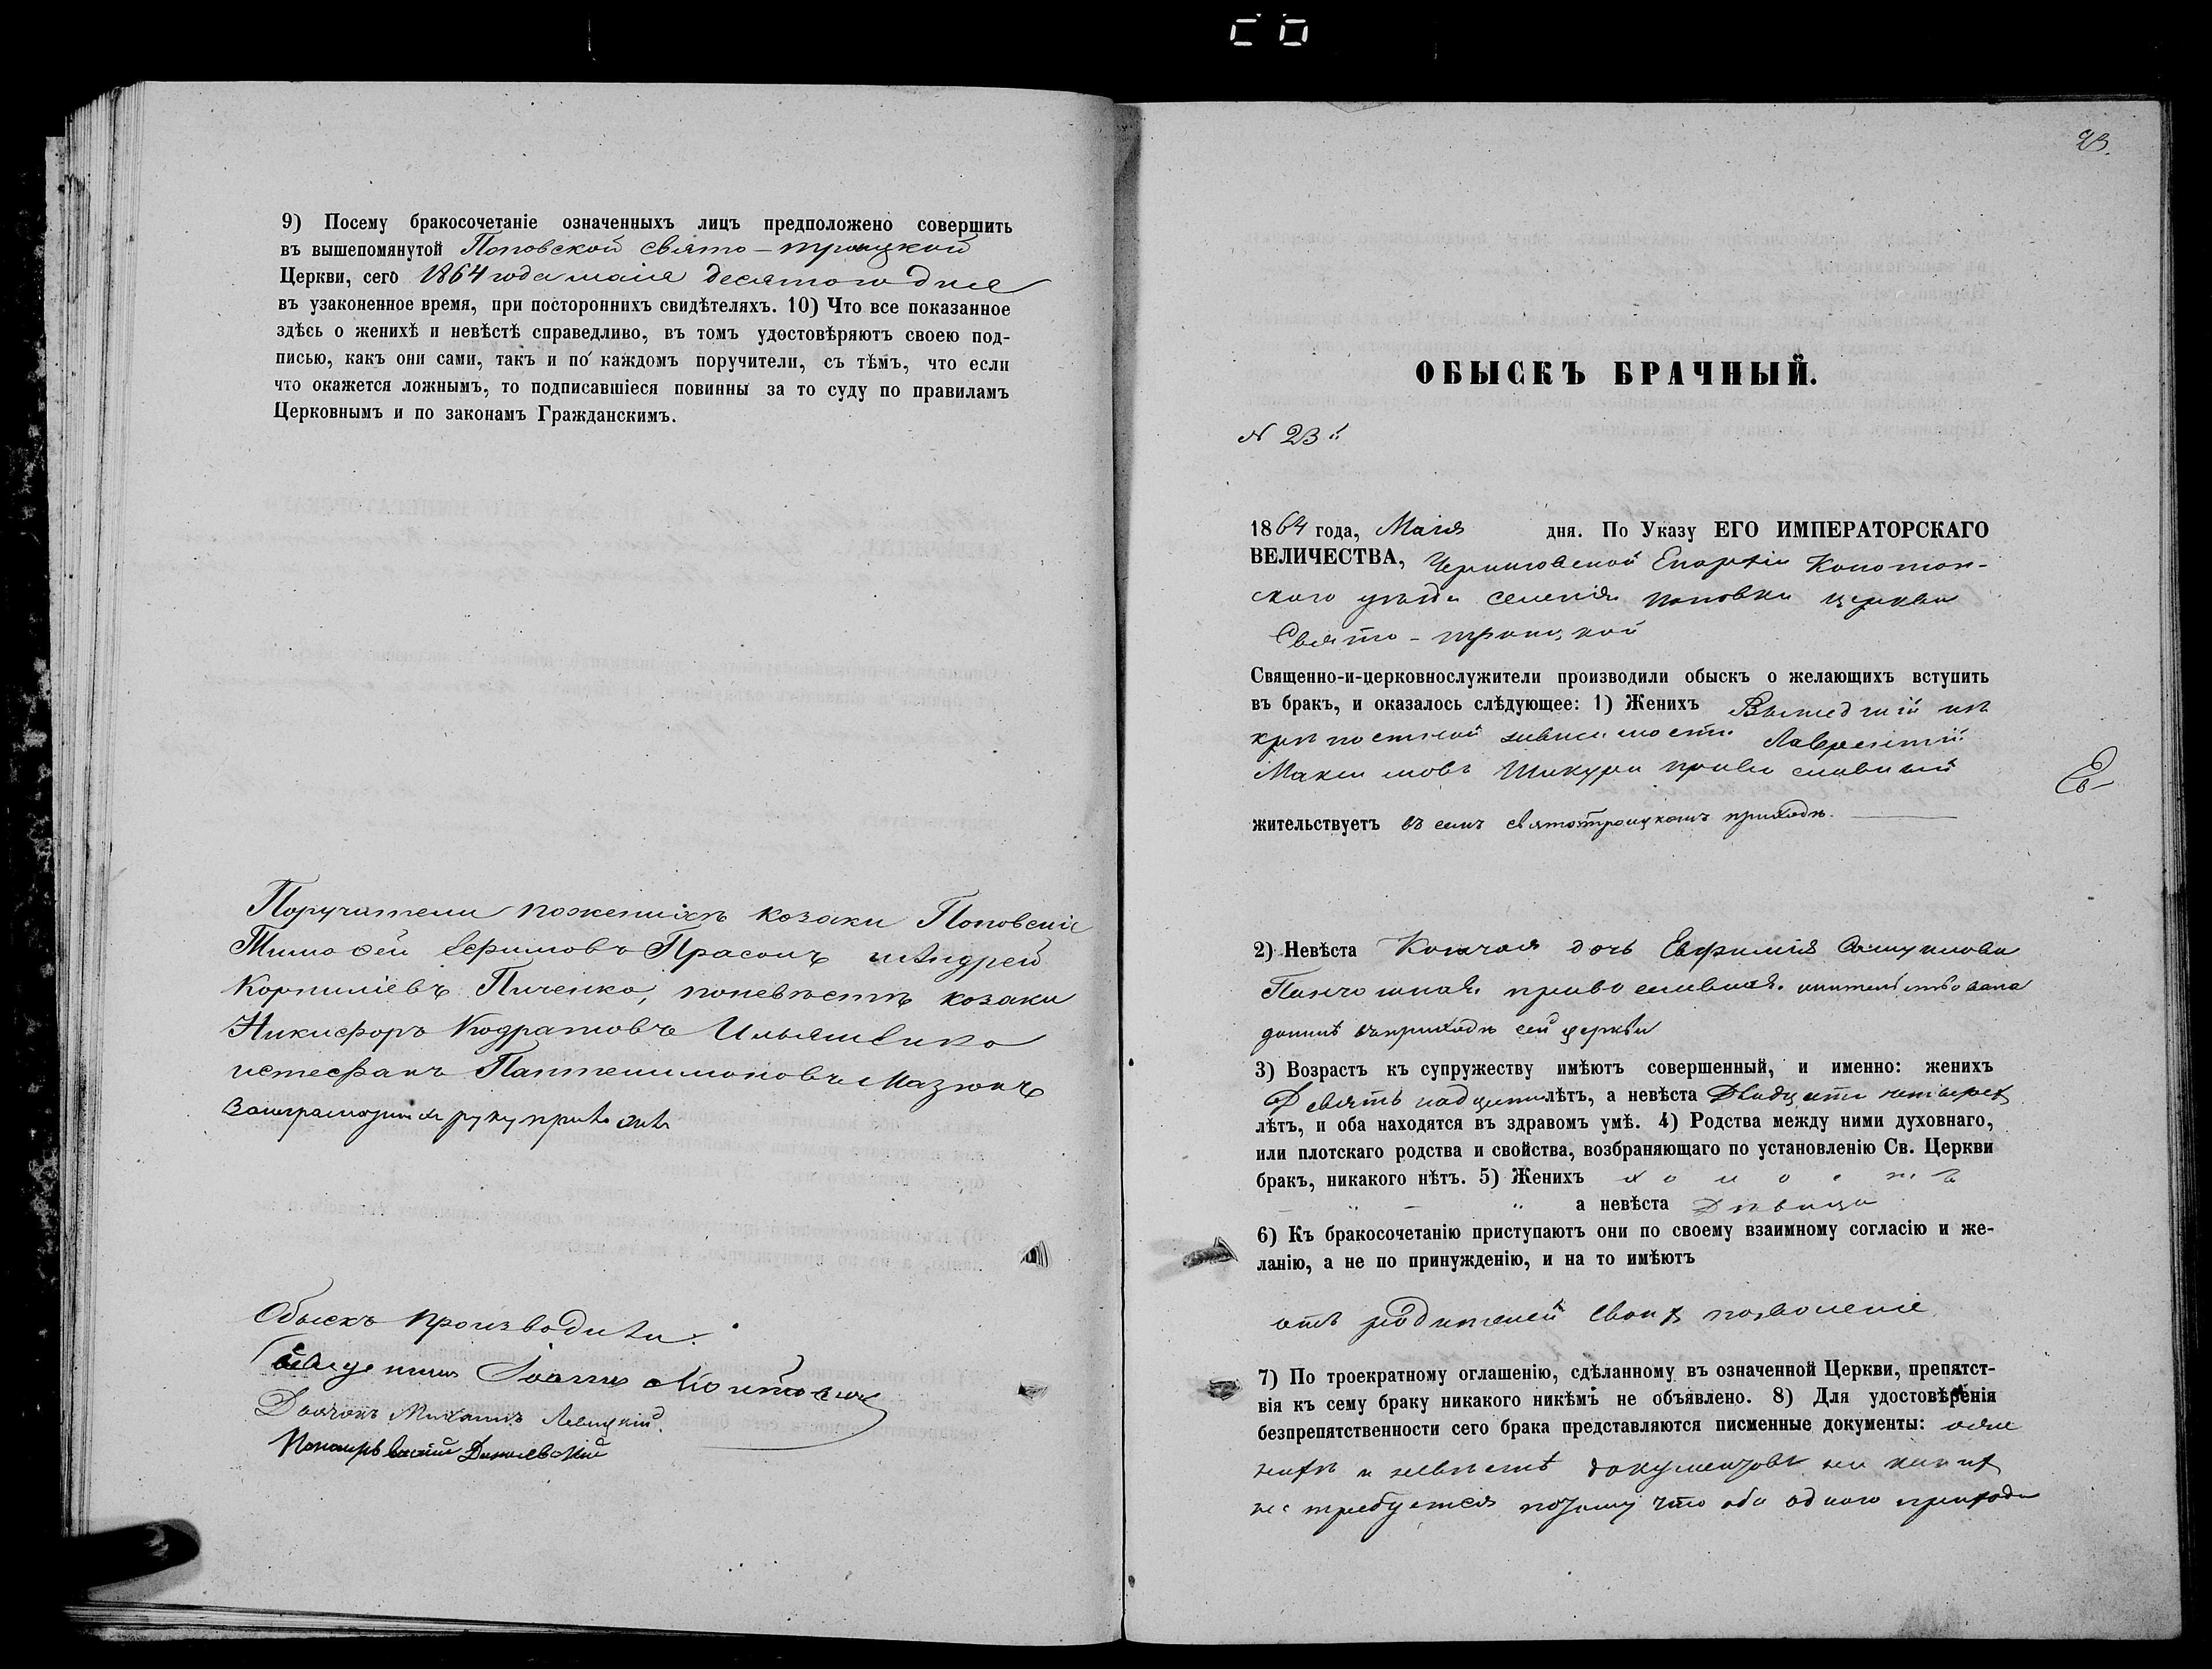 9) Посему бракосочетаніе означенныхъ лицъ предположено совершить
въ вышепомянутой Поповской Свято-троицкой
Церкви, сего 1864 года маія десятого дня
въ узаконенное время, при постороннихъ свидѣтеляхъ. 10) Что все показанное
здѣсь о женихѣ и невѣстѣ справедливо, въ томъ удостовѣряютъ своею под-
писью, какъ они сами, такъ и по каждомъ поручители, съ тѣмъ, что если
что окажется ложнымъ, то подписавшіеся повинны за то суду по правиламъ
Церковнымъ и по законамъ Гражданскимъ.
Поручатели поженихѣ козаки Поповскіе
Тимофей Ефимовъ Прасолъ и Андрей
Корниліевъ Пиченко, поневѣстѣ козаки
Никифоръ Кодратовъ Ильяшенко
истефанъ Пантелимоновъ Мазюкъ
Обыскъ производили:
Священникъ Іоаннъ
Дьячокъ Михаилъ Левицкій
Пономарь
23.
ОБЫСКЪ БРАЧНЫЙ.
N 23й
1864 года, Маія дня. По Указу ЕГО ИМПЕРАТОРСКАГО
ВЕЛИЧЕСТВА, Черниговской Епархіи Конотоп-
ского уѣзда селенія Поповки церкви
Свято-троицкой
Священно-и-церковнослужители производили обыскъ о желающихъ вступить
въ бракъ, и оказалось слѣдующее: 1) Женихъ Вышедшій изъ
крѣпостной зависимости Лаврентій
Максимовъ Шикура православный
жительствуетъ въ семъ святотроицкомъ приходѣ.
2) Невѣста Козачая дочь Евфимія Самуилова
православная. жительствовала
донинѣ въ приходѣ сей церкви
3) Возрастъ къ супружеству имѣютъ совершенный, и именно: женихъ
Девятьнадцати лѣтъ, а невѣста Двадцати четырех
лѣтъ, и оба находятся въ здравомъ умѣ. 4) Родства между ними духовнаго,
или плотскаго родства и свойства, возбраняющаго по установленію Св. Церкви
бракъ, никакого нѣтъ. 5) Женихъ холостъ
а невѣста Дѣвица
6) Къ бракосочетанію приступаютъ они по своему взаимному согласію и же-
ланію, а не по принужденію, и на то имѣютъ
отъ родителей своих позволеніе
7) По троекратному оглашенію, сдѣланному въ означенной Церкви, препятст-
вія къ сему браку никакого никѣмъ не объявлено. 8) Для удостовѣренія
безпрепятственности сего брака представляются писменные документы: оже
нихѣ и невѣстѣ документовъ ни каких
не требуется потому что оба одного прихода